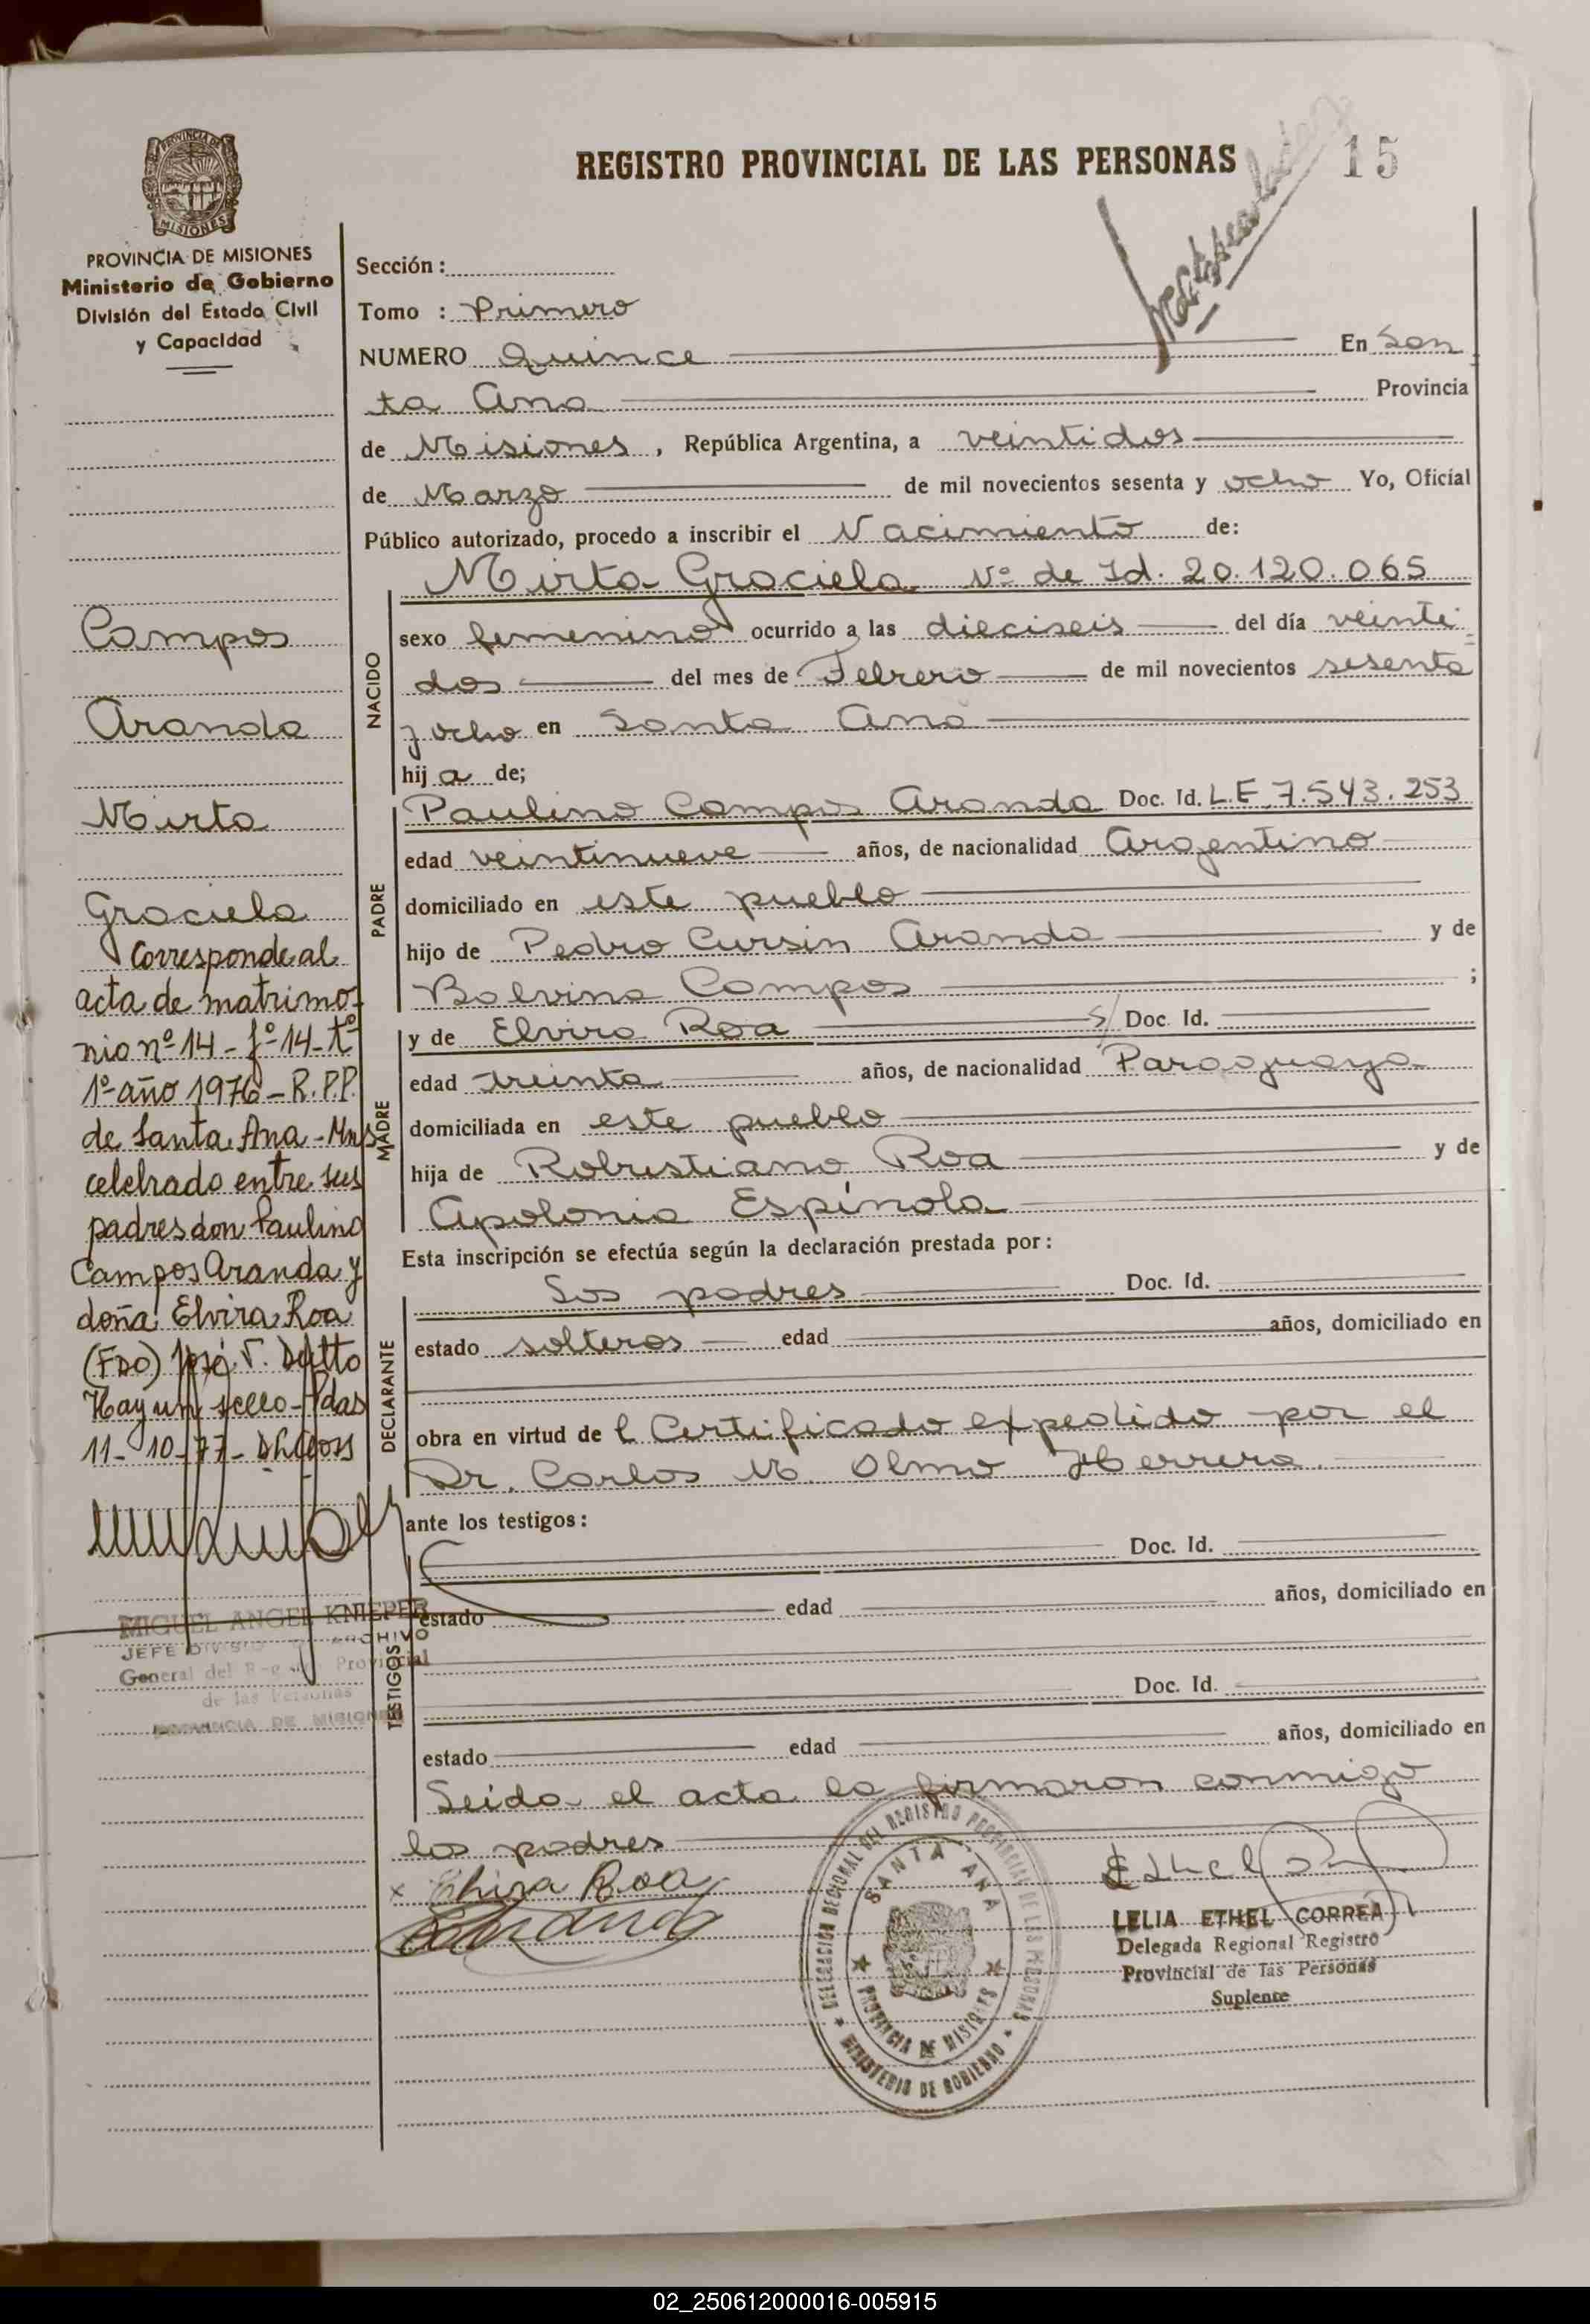 REGISTRO PROVINCIAL DE LAS PERSONAS
15
PROVINCIA DE MISIONES
Ministerio de Gobierno
División del Estado Civil
y Capacidad
Campos
Aranda
Mirta
Graciela
Corresponde al
acta de matrimo-
nio nº 14 - fº 14 - tº
1º año 1976 - R.P.P.
de Santa Ana - Mns
celebrado entre sus
padres don Paulino
Campos Aranda y
doña Elvira Roa
(FDO) José
Hay un sello - Pdas
11 - 10 - 77 -
MIGUEL ANGEL KNIEPER
JEFE DIVISIO ARCHIVO
General del Provincial
de las Personas
PROVINCIA DE MISIONES
Sección :
Tomo : Primero
NUMERO Quince En San
ta Ana Provincia
de Misiones , República Argentina, a veintidos
de Marzo de mil novecientos sesenta y ocho Yo, Oficial
Público autorizado, procedo a inscribir el Nacimiento de:
NACIDO
Mirta Graciela Nº de Id. 20.120.065
sexo femenino ocurrido a las dieciseis del día veinti
dos del mes de Febrero de mil novecientos sesenta
y ocho en Santa Ana
hij a de;
PADRE
Paulino Campos Aranda Doc. Id. L.E. 7.543.253
edad veintinueve años, de nacionalidad Argentino
domiciliado en este pueblo
hijo de Pedro Cursin Aranda y de
Balvina Campos ;
MADRE
y de Elvira Roa S/ Doc. Id.
edad treinta años, de nacionalidad Paraguaya
domiciliada en este pueblo
hija de Robustiano Roa y de
Apolonia Espínola
Esta inscripción se efectúa según la declaración prestada por:
DECLARANTE
Sus padres Doc. Id.
estado solteros edad años, domiciliado en
obra en virtud de l Certificado expedido por el
Dr. Carlos M. Olmo Herrera.
ante los testigos:
TESTIGOS
Doc. Id.
estado edad años, domiciliado en
Doc. Id.
estado edad años, domiciliado en
Leida el acta la firmaron conmigo
los padres
x Elvira Roa
DELEGACION REGIONAL DEL REGISTRO PROVINCIAL DE LAS PERSONAS
SANTA ANA
PROVINCIA DE MISIONES
MINISTERIO DE GOBIERNO
LELIA ETHEL CORREA
Delegada Regional Registro
Provincial de las Personas
Suplente
02_250612000016-005915